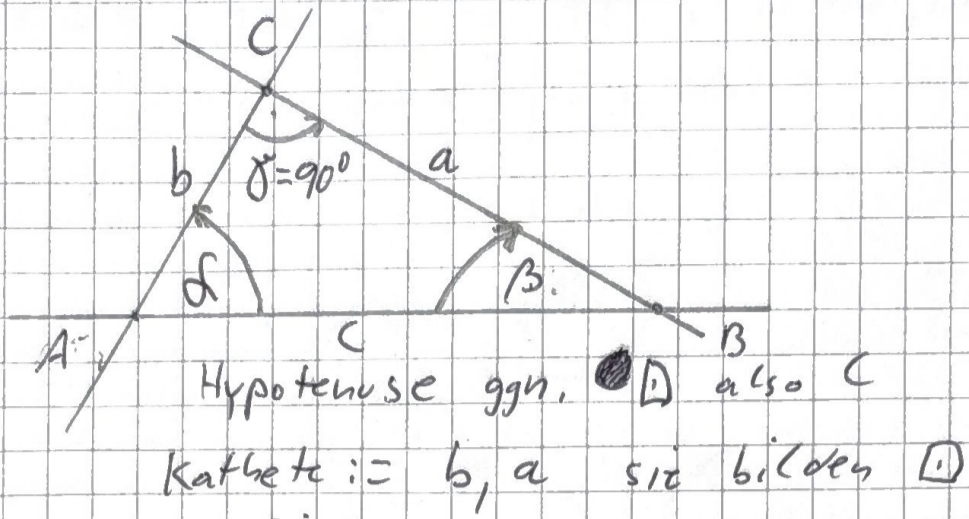 C
b γ=90° a
α β.
A c B
Hypotenuse ggn. ⊡ also c
Kathete := b, a sie bilden ⊡